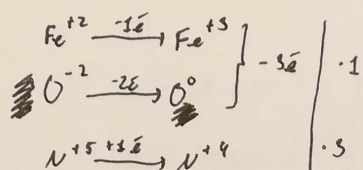 Fe⁺² -1ē → Fe⁺³
O⁻² -2ē → O⁰ ] -3ē | ·1
N⁺⁵ +1ē → N⁺⁴ | ·3